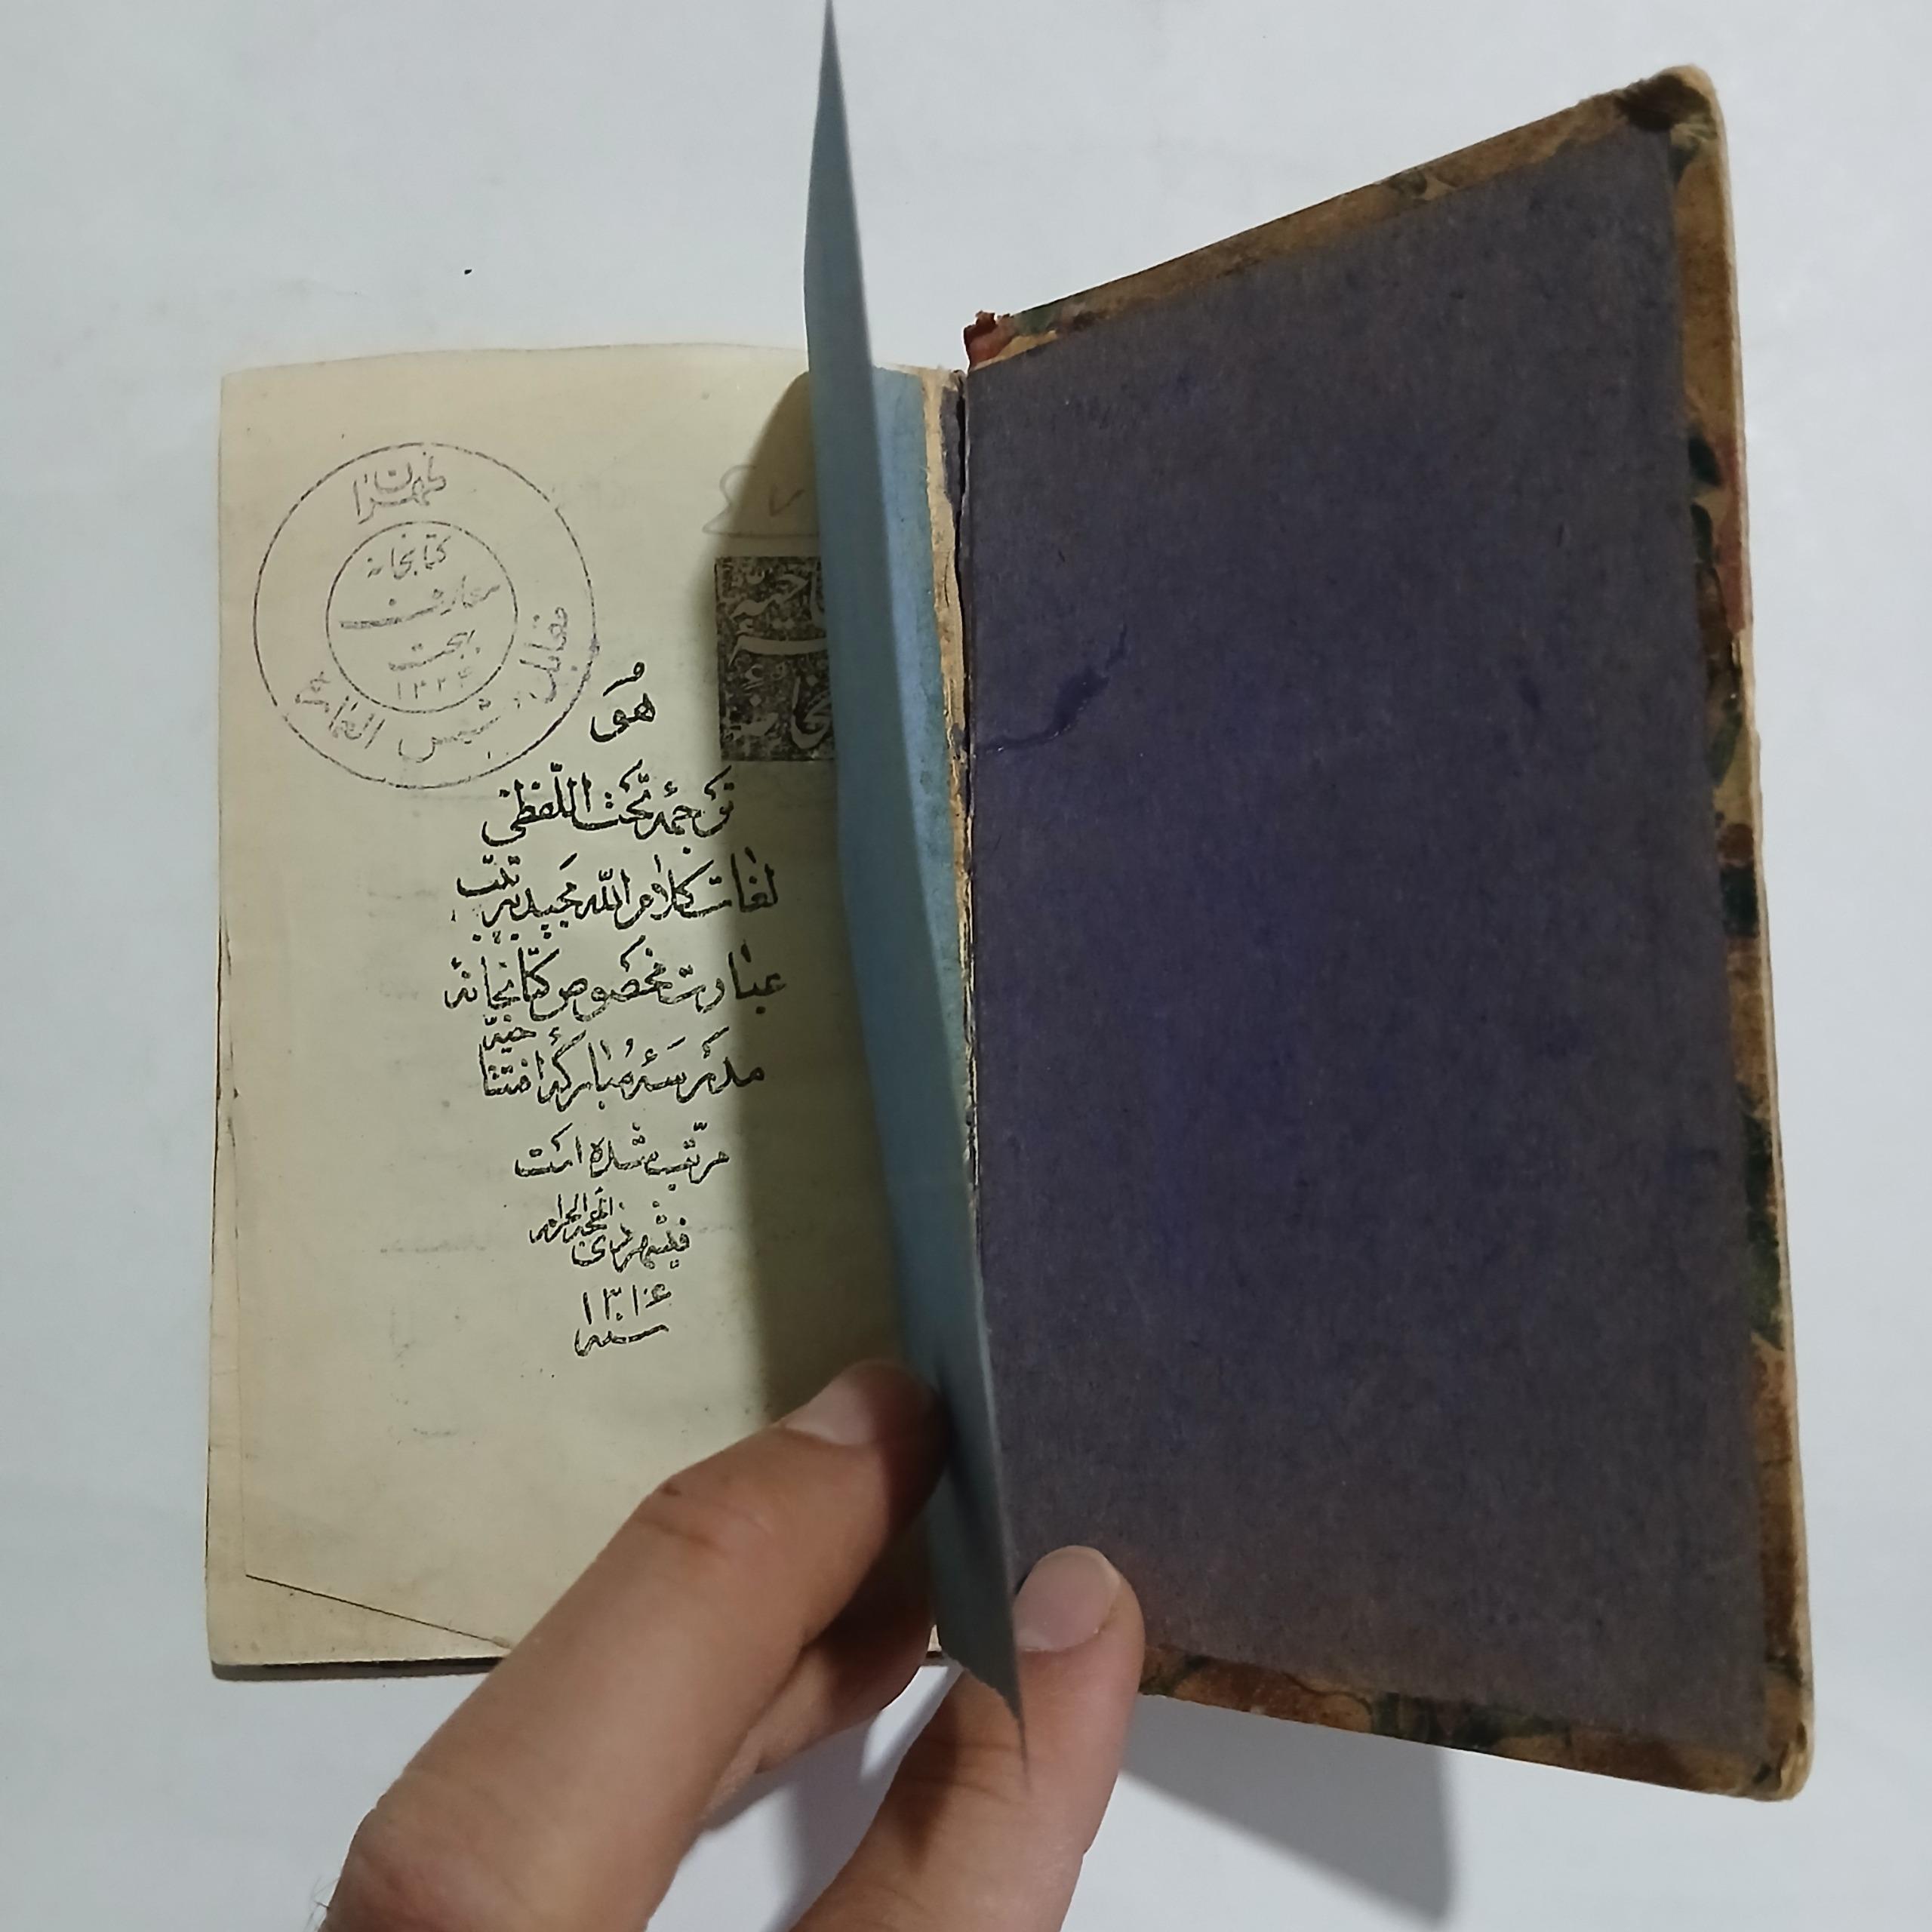 طهران
کتابخانه
معارف
بهجت
۱۳۲۴
مقابل شمس العماره
۶۷
هُوَ
ترجمهٔ تحت اللّفظی
لغات کلام اللّه مجید بترتیب
عبارت مخصوص کتابخانهٔ
مدرسهٔ مبارکهٔ افتتاحیّه
مرتّب شده است
فی شهر ذی الحجّه الحرام
سنه ۱۳۱۶